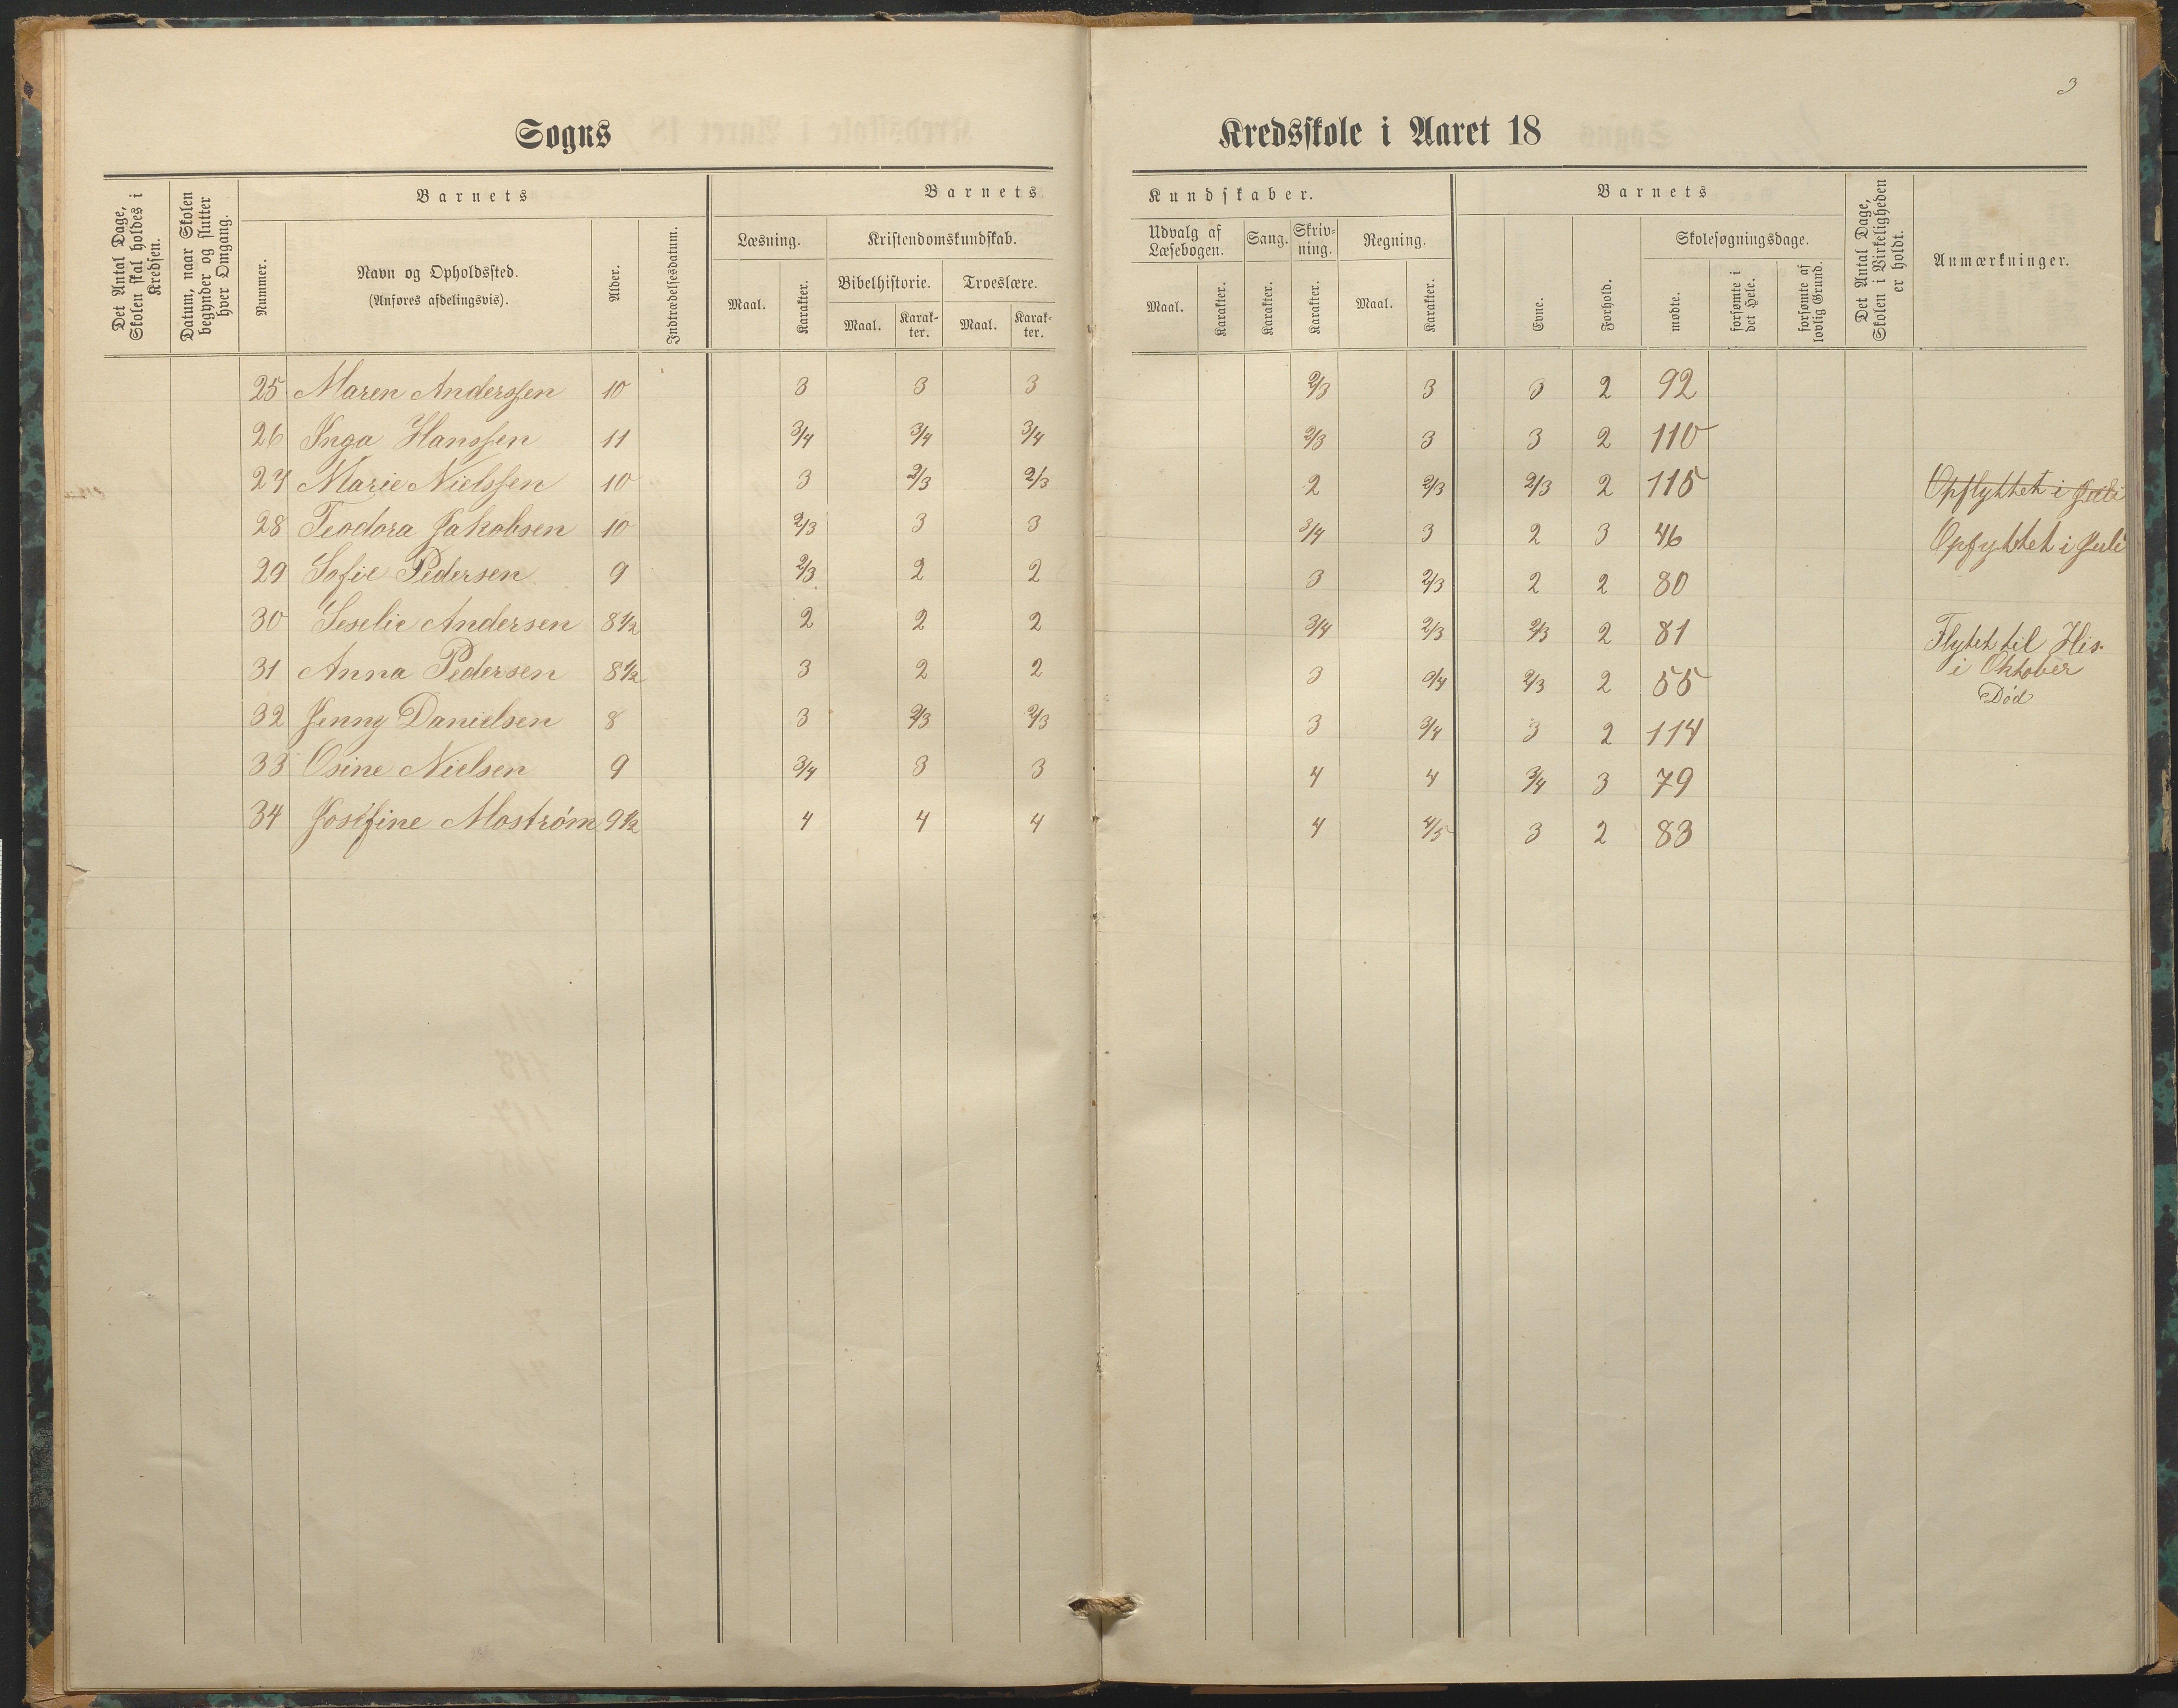 3
Sogns Kredsskole i Aaret 18
Det Antal Dage, Skolen skal holdes i Kredsen.
Datum, naar Skolen begynder og slutter hver Omgang.
Barnets
Nummer.
Navn og Opholdssted.
(Anføres afdelingsvis).
Alder.
Indtrædelsesdatum.
Barnets Kundskaber.
Læsning.
Maal.
Karakter.
Kristendomskundskab.
Bibelhistorie.
Maal.
Karakter.
Troeslære.
Maal.
Karakter.
Udvalg af Læsebogen.
Maal.
Karakter.
Sang.
Karakter.
Skrivning.
Karakter.
Regning.
Maal.
Karakter.
Barnets
Evne.
Forhold.
Skolesøgningsdage.
mødte.
forsømte i det Hele.
forsømte af lovlig Grund.
Det Antal Dage, Skolen i Virkeligheden er holdt.
Anmærkninger.
25 Maren Anderssen 10 3 3 3 2/3 3 3 2 92
26 Inga Hanssen 11 3/4 3/4 3/4 2/3 3 3 2 110
27 Marie Nielssen 10 3 2/3 2/3 2 2/3 2/3 2 115 Opflyttet i Juli
28 Teodora Jakobsen 10 2/3 3 3 3/4 3 2 3 46 Opfyttet i Juli
29 Sofie Pedersen 9 2/3 2 2 3 2/3 2 2 80
30 Seselie Andersen 8 1/2 2 2 2 3/4 2/3 2/3 2 81 Flyttet til His.
i Oktober
31 Anna Pedersen 8 1/2 3 2 2 3 3/4 2/3 2 55 Død
32 Jenny Danielsen 8 3 2/3 2/3 3 3/4 3 2 114
33 Osine Nielsen 9 3/4 3 3 4 4 3/4 3 79
34 Josefine Mostrøm 9 1/2 4 4 4 4 4/5 3 2 83